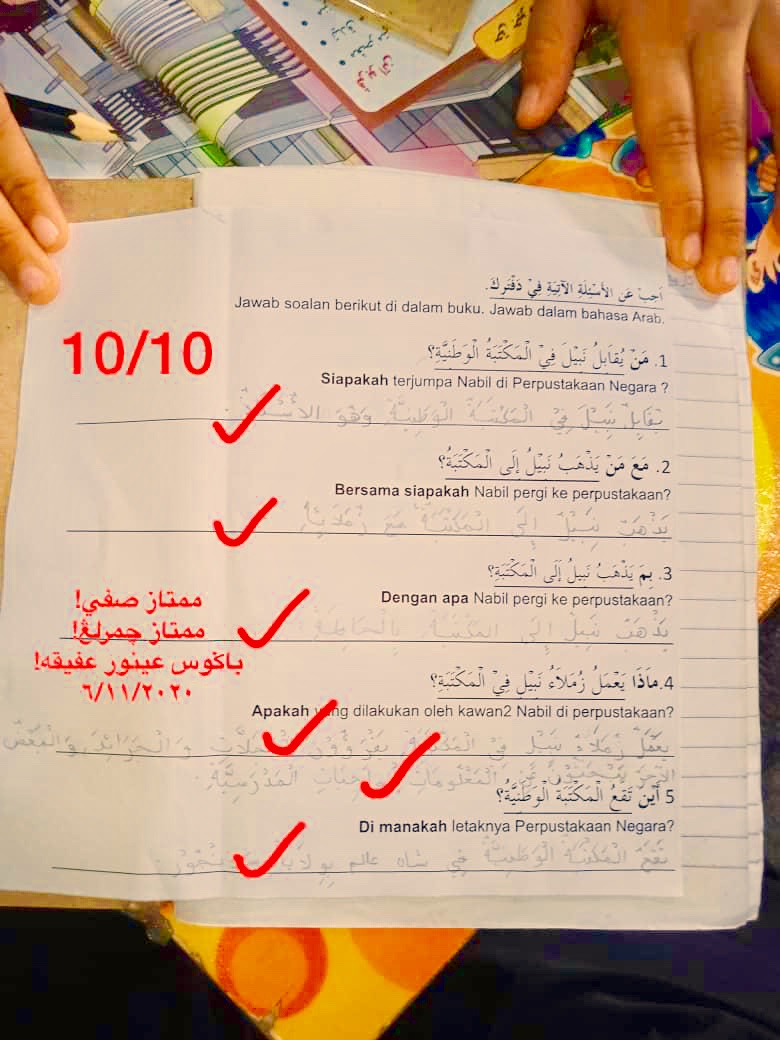 أَجِبْ عَن الأَسْئِلَةِ الآتِيَةِ فِيْ دَفْتَرِكَ.
Jawab soalan berikut di dalam buku. Jawab dalam bahasa Arab.
10/10
1. مَنْ يُقَابِلُ نَبِيْلَ فِيْ الْمَكْتَبَةُ الْوَطَنِيَّةِ؟
Siapakah terjumpa Nabil di Perpustakaan Negara ?
يُقَابِلُ نَبِيْلَ فِيْ الْمَكْتَبَةُ الْوَطَنِيَّةِ وَهُوَ الأُسْتَاذُ.
2. مَعَ مَنْ يَذْهَبُ نَبِيْلُ إِلَى الْمَكْتَبَةُ؟
Bersama siapakah Nabil pergi ke perpustakaan?
يَذْهَبُ نَبِيْلُ إِلَى الْمَكْتَبَةُ مَعَ زُمَلَائِهِ
3. بِمَ يَذْهَبُ نَبِيلُ إِلَى الْمَكْتَبَةِ؟
Dengan apa Nabil pergi ke perpustakaan?
يَذْهَبُ نَبِيْلُ إِلَى الْمَكْتَبَةِ بِالْحَافِلَةِ.
ممتاز صفي!
ممتاز چمرلڠ!
باݢوس عينور عفيقه!
٦/١١/٢٠٢٠
4.مَاذَا يَعْمَلُ زُمَلاَءُ نَبِيْلِ فِيْ الْمَكْتَبَةِ؟
Apakah yang dilakukan oleh kawan2 Nabil di perpustakaan?
يَعْمَلُ زُمَلَاءُ نَبِيْل فِيْ الْمَكْتَبَةِ يَقْرَؤُوْنَ الْمَجَلَّاتِ وَالْجَرَائِدَ وَالْبَعْضُ
الآخَرُ يَبْحَثُوْنَ عَنِ الْمَعْلُومَاتِ لِوَاجِبَاتِ الْمَدْرَسِيَّةِ.
5 أَيْنَ تَقَعُ الْمَكْتَبَةُ الْوَطَنِيَّةُ؟
Di manakah letaknya Perpustakaan Negara?
تَقَعُ الْمَكْتَبَةُ الْوَطَنِيَّةُ فِي شاه عالم